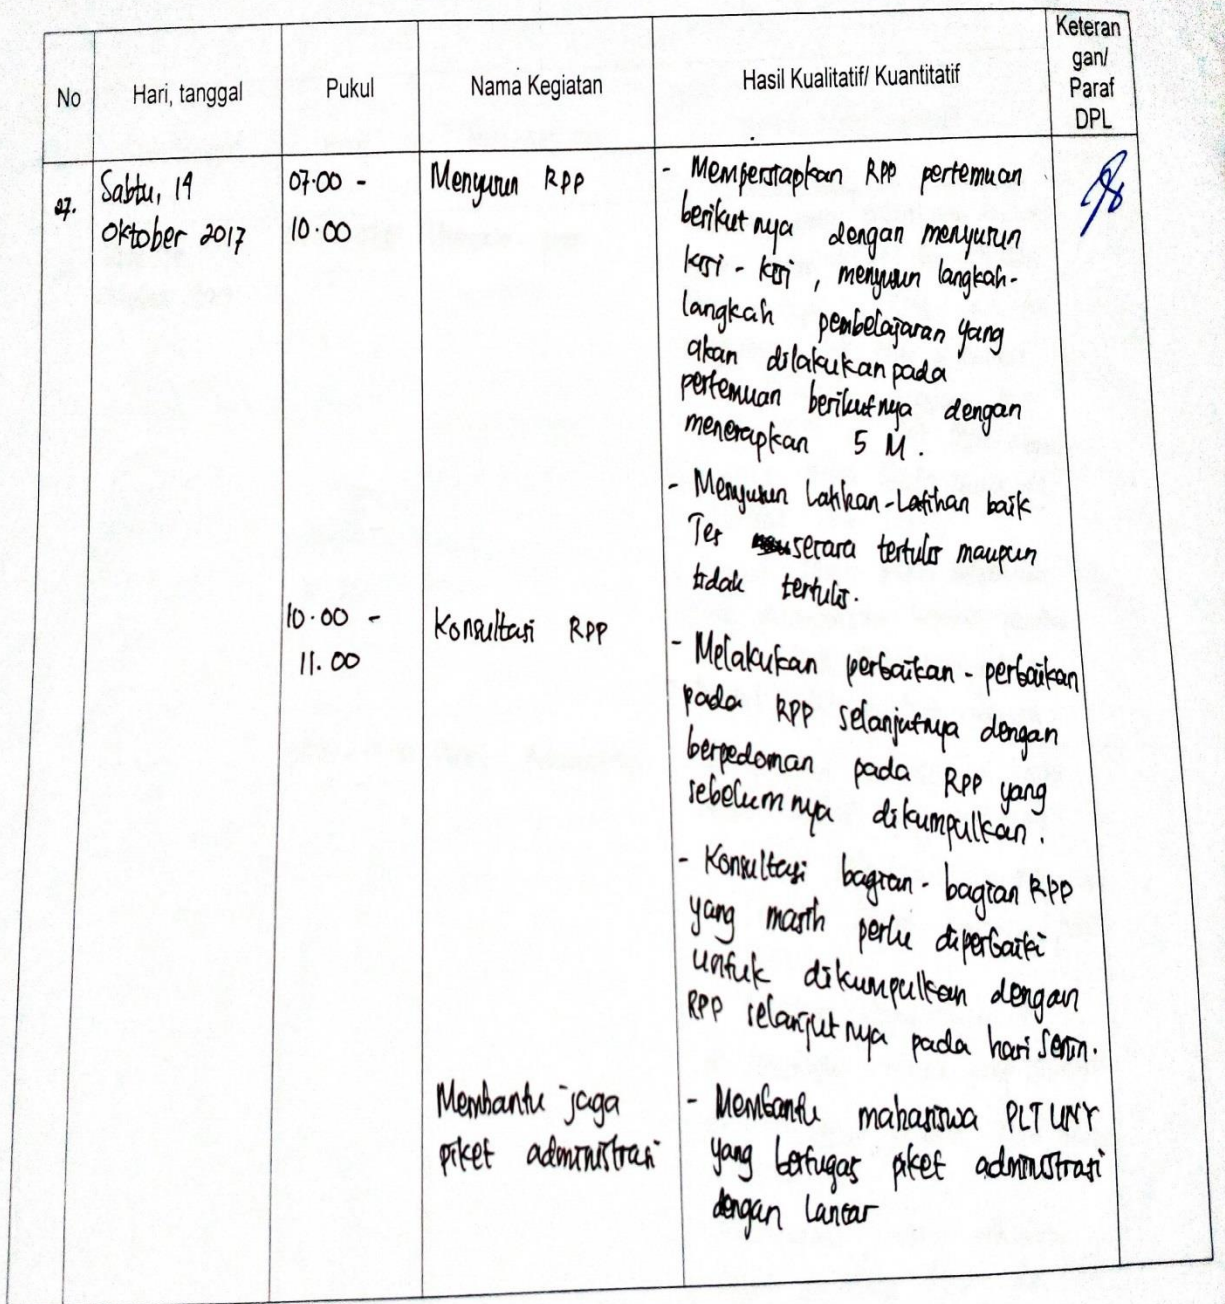 No
Hari, tanggal
Pukul
Nama Kegiatan
Hasil Kualitatif/ Kuantitatif
Keteran
gan/
Paraf
DPL
27.
Sabtu, 14
Oktober 2017
07.00 -
10.00
Menyusun RPP
- Mempersiapkan RPP pertemuan
berikutnya dengan menyusun
kisi - kisi, menyusun langkah-
langkah pembelajaran yang
akan dilakukan pada
pertemuan berikutnya dengan
menerapkan 5 M.
- Menyusun Latihan-Latihan baik
Tes secara tertulis maupun
tidak tertulis.
10.00 -
11.00
Konsultasi RPP
- Melakukan perbaikan - perbaikan
pada RPP selanjutnya dengan
berpedoman pada RPP yang
sebelumnya dikumpulkan.
- Konsultasi bagian - bagian RPP
yang masih perlu diperbaiki
untuk dikumpulkan dengan
RPP selanjutnya pada hari Senin.
Membantu jaga
piket administrasi
- Membantu mahasiswa PLT UNY
yang bertugas piket administrasi
dengan Lancar